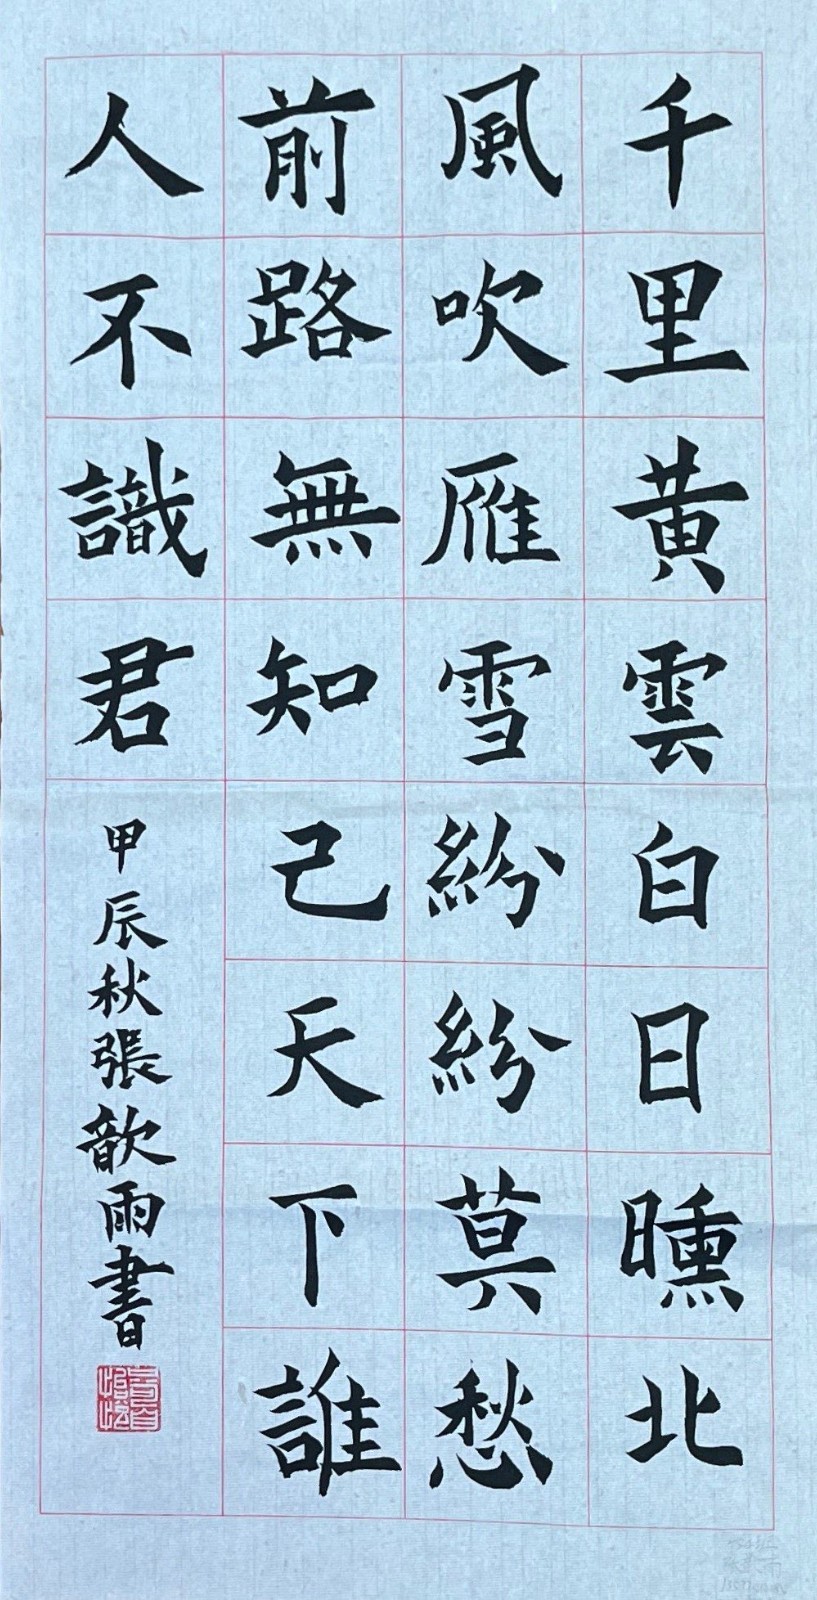 千里黃雲白日曛北
風吹雁雪紛紛莫愁
前路無知己天下誰
人不識君
甲辰秋張歆雨書